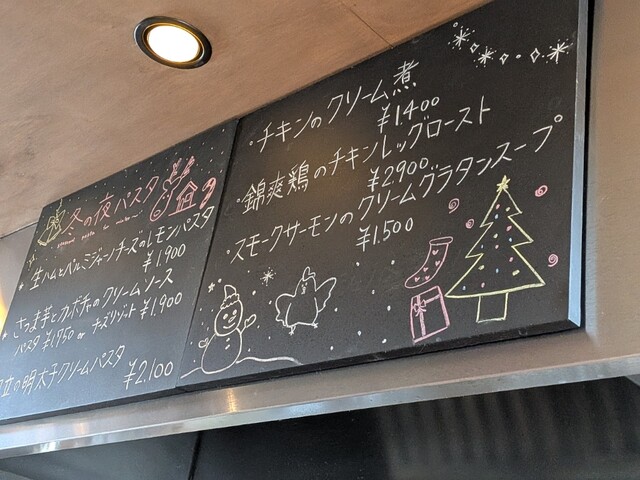 冬の夜パスタ
生ハムとパルミジャーノチーズのレモンパスタ
¥1900
さつま芋とカボチャのクリームソース
パスタ ¥1750 or チーズリゾット ¥1,900
の明太子クリームパスタ
¥2,100
チキンのクリーム煮
¥1,400
錦爽鶏のチキンレッグロースト
¥2900
スモークサーモンのクリームグラタンスープ
¥1,500